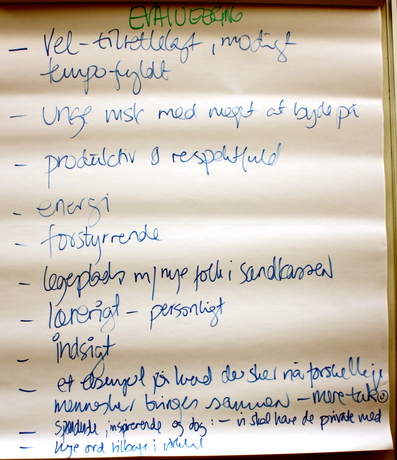 EVALUERING
- Vel-tilrettelagt, modigt
tempofyldt
- unge msk med meget at byde på
- produktiv & respektfuld
- energi
- forstyrrende
- legeplads m/ nye folk i sandkassen
- lærerigt - personligt
- indsigt
- et eksempel på hvad der sker når forskellige
mennesker bringes sammen - mere tak
- Spændende, inspirerende og dog: - vi skal have de private med
- Nye ord tilbage i